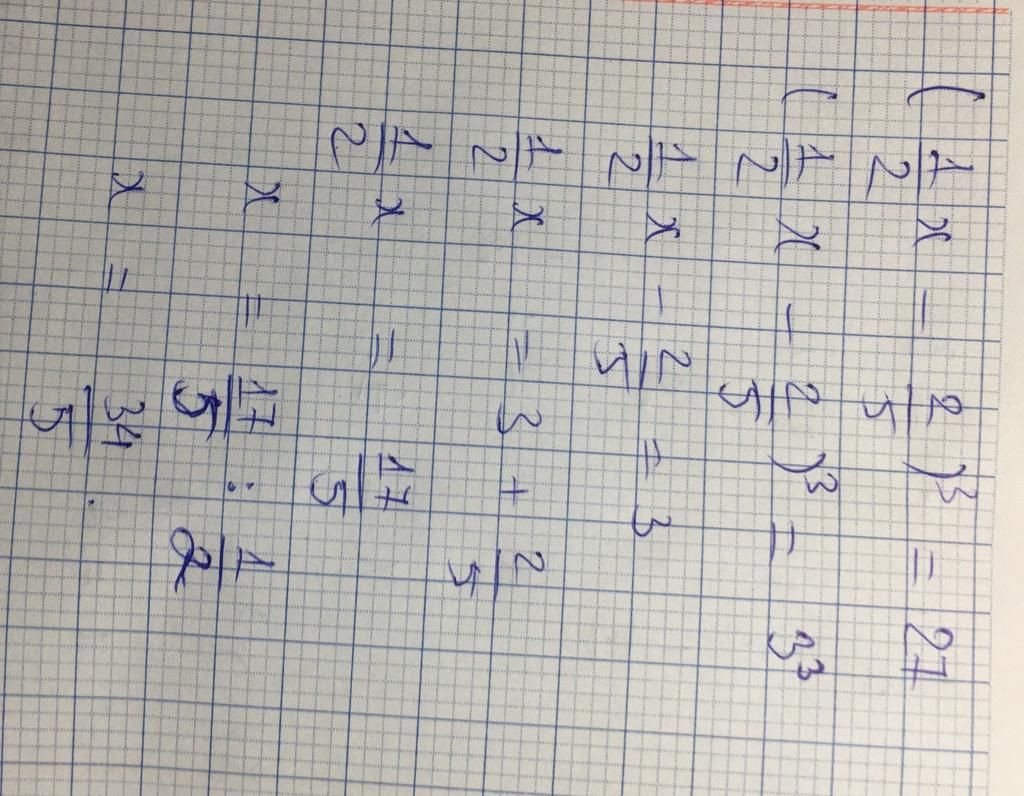 (1/2 x - 2/5)³ = 27
(1/2 x - 2/5)³ = 3³
1/2 x - 2/5 = 3
1/2 x = 3 + 2/5
1/2 x = 17/5
x = 17/5 : 1/2
x = 34/5.